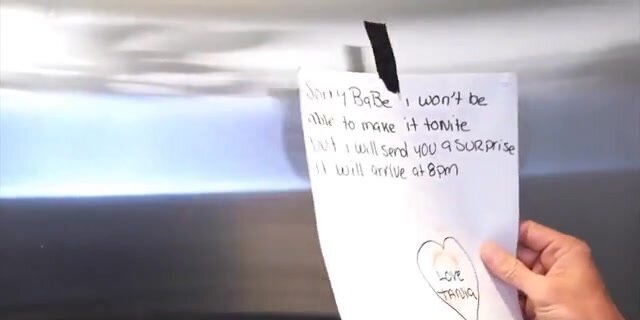 Sorry BaBe i won't be
able to make it tonite
but i will send you a SURPrise
it will arrive at 8pm
LOVE
TANIA